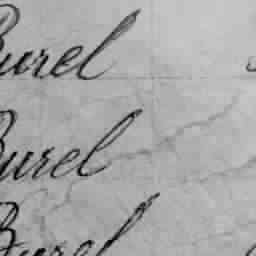 Burel
Burel
Burel